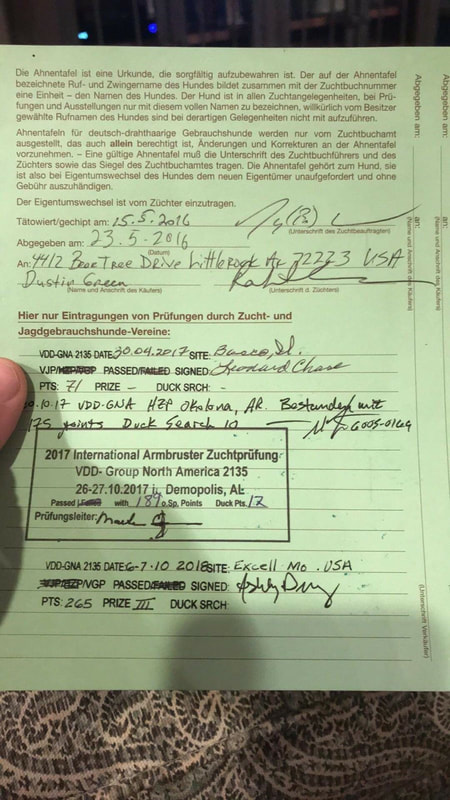 Die Ahnentafel ist eine Urkunde, die sorgfältig aufzubewahren ist. Der auf der Ahnentafel
bezeichnete Ruf- und Zwingername des Hundes bildet zusammen mit der Zuchtbuchnummer
eine Einheit – den Namen des Hundes. Der Hund ist in allen Zuchtangelegenheiten, bei Prü-
fungen und Ausstellungen nur mit diesem vollen Namen zu bezeichnen, willkürlich vom Besitzer
gewählte Rufnamen des Hundes sind bei derartigen Gelegenheiten nicht mit aufzuführen.
Ahnentafeln für deutsch-drahthaarige Gebrauchshunde werden nur vom Zuchtbuchamt
ausgestellt, das auch allein berechtigt ist, Änderungen und Korrekturen an der Ahnentafel
vorzunehmen. – Eine gültige Ahnentafel muß die Unterschrift des Zuchtbuchführers und des
Züchters sowie das Siegel des Zuchtbuchamtes tragen. Die Ahnentafel gehört zum Hund, sie
ist also bei Eigentumswechsel des Hundes dem neuen Eigentümer unaufgefordert und ohne
Gebühr auszuhändigen.
Der Eigentumswechsel ist vom Züchter einzutragen.
Tätowiert/gechipt am: 15.5.2016
(Unterschrift des Zuchtbeauftragten)
Abgegeben am: 23.5-2016
(Datum)
An: 4412 Bear Tree Drive Little Rock Ar 72223 USA
Dustin Green
(Name und Anschrift des Käufers) (Unterschrift d. Züchters)
Hier nur Eintragungen von Prüfungen durch Zucht- und
Jagdgebrauchshunde-Vereine:
VDD-GNA 2135 DATE: 30.04.2017 SITE:
VJP/HZP/VGP PASSED/FAILED SIGNED: Leonard Chase
PTS: 71 PRIZE – DUCK SRCH: –
.10.17 VDD-GNA HZP Okolona, AR. Bestanden mit
175 points Duck Search 10
2017 International Armbruster Zuchtprüfung
VDD- Group North America 2135
26-27.10.2017 i. Demopolis, AL
Passed Failed with 189 o.Sp, Points Duck Pts. 12
Prüfungsleiter:
VDD-GNA 2135 DATE: 6-7.10 2018 SITE: Excell Mo. USA
VJP/HZP/VGP PASSED/FAILED SIGNED:
PTS: 265 PRIZE III DUCK SRCH:
Abgegeben am:
an:
(Name und Anschrift des Käufers)
(Unterschrift Verkäufer)
Abgegeben am:
an:
(Name und Anschrift des Käufers)